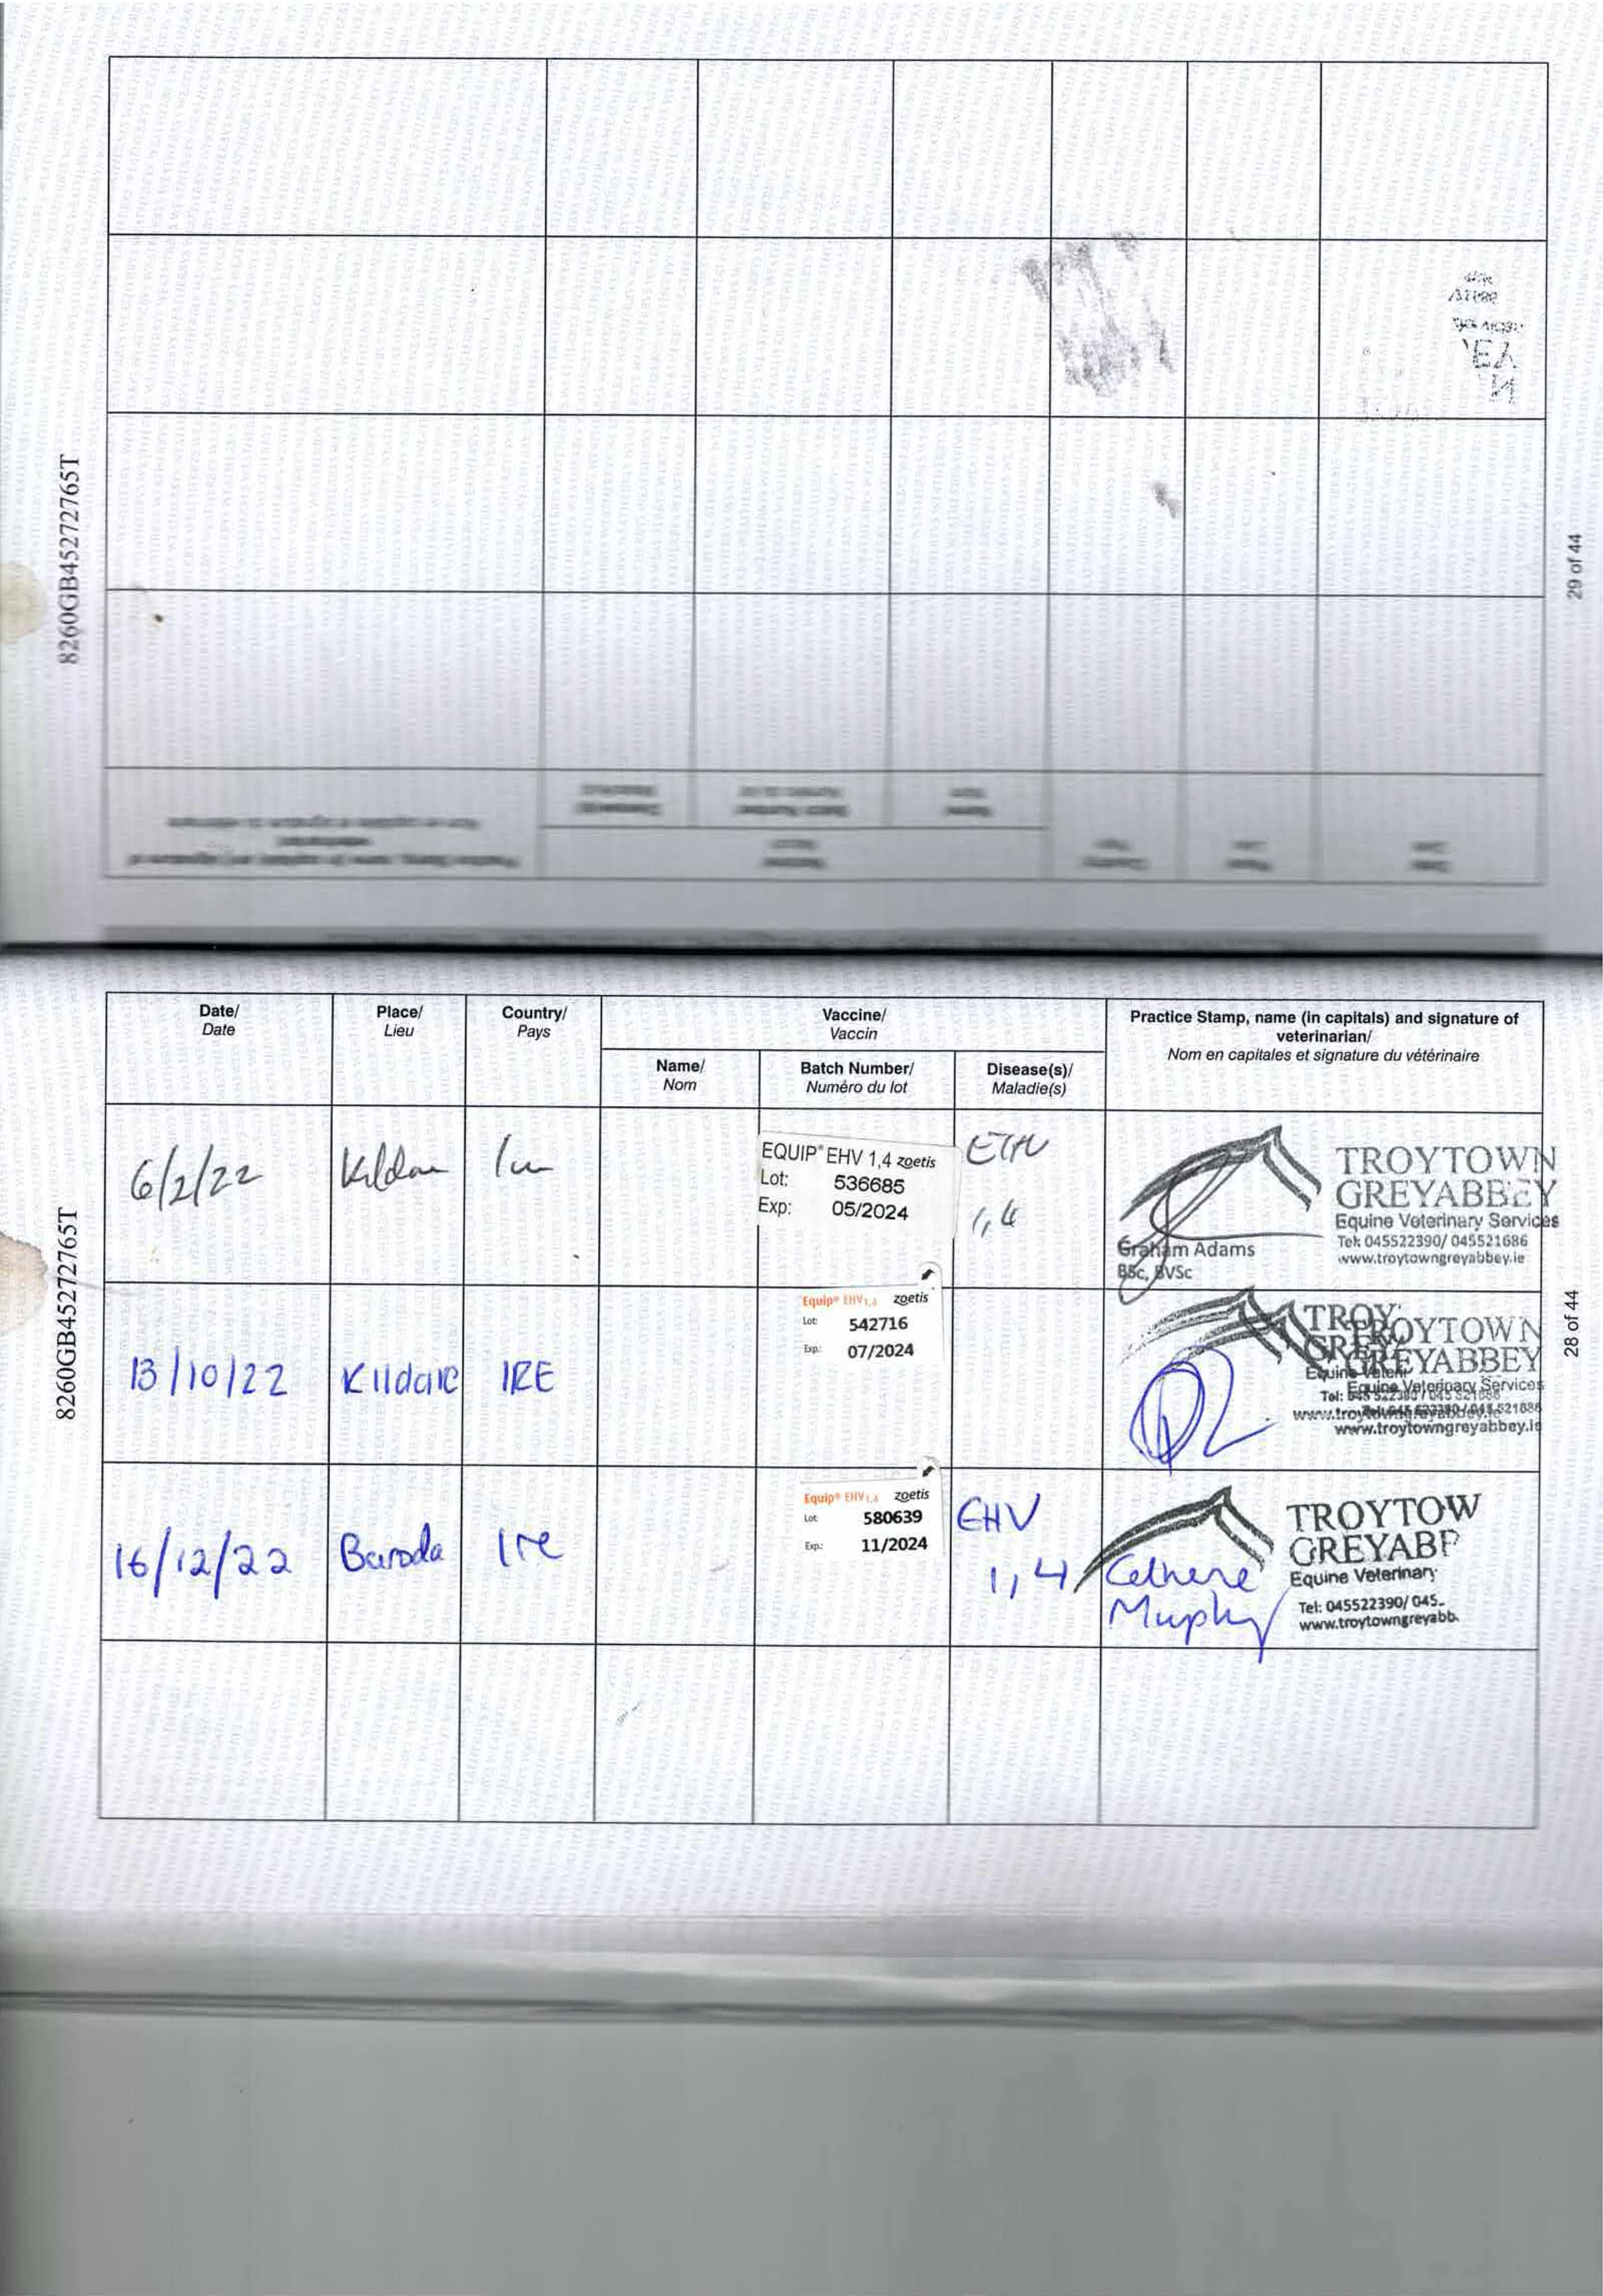 8260GB45272765T
29 of 44
Date/
Date
Place/
Lieu
Country/
Pays
Vaccine/
Vaccin
Name/
Nom
Batch Number/
Numéro du lot
Disease(s)/
Maladie(s)
Practice Stamp, name (in capitals) and signature of
veterinarian/
Nom en capitales et signature du vétérinaire
6/2/22
EQUIP® EHV 1,4 zoetis
Lot: 536685
Exp: 05/2024
1,4
TROYTOWN
GREYABBEY
Equine Veterinary Services
Tel: 045522390/ 045521686
www.troytowngreyabbey.ie
Graham Adams
BSc, BVSc
13/10/22
Kildare
IRE
Equip® EHV1,4 zoetis
Lot: 542716
Exp.: 07/2024
TROYTOWN
GREYABBEY
Equine Veterinary Services
www.troytowngreyabbey.ie
16/12/22
Baroda
Ire
Equip® EHV1,4 zoetis
Lot: 580639
Exp.: 11/2024
EHV
1,4
Murphy
TROYTOW
GREYAB
Equine Veterinary
Tel: 045522390/ 045
www.troytowngreyabb.
8260GB45272765T
28 of 44